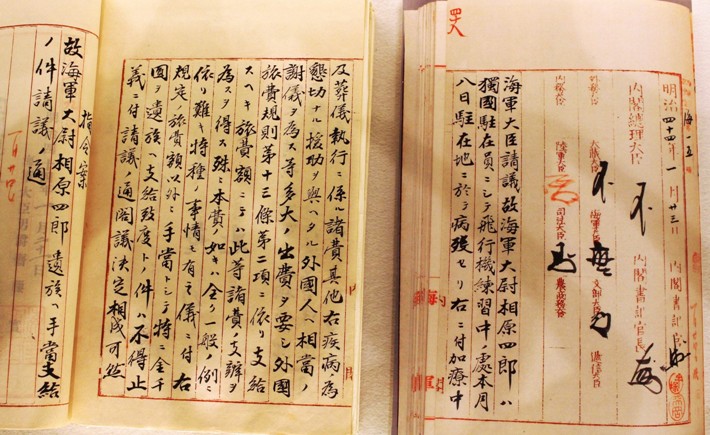 明治四十四年一月廿三日
内閣總理大臣
内閣書記官長
内閣書記官
外務大臣
大藏大臣
海軍大臣
文部大臣
遞信大臣
内務大臣
陸軍大臣
司法大臣
農商務大臣
海軍大臣請議故海軍大尉相原四郎ハ
獨國駐在員ニシテ飛行機練習中ノ處本月
八日駐在地ニ於テ病歿セリ右ニ付加療中
及葬儀執行ニ係ル諸費其他右疾病ノ為
懇切ナル援助ヲ與ヘタル外國人ヘ相當ノ
謝儀ヲ為ス等多大ノ出費ヲ要シ外國
旅費規則第十三條第二項ニ依リ支給
スヘキ旅費額ニテハ此等諸費ノ支辨ヲ
為スヲ得ス殊ニ本費ノ如キハ全ク一般ノ例ニ
依リ難キ特種ノ事情モ有之儀ニ付右
規定ノ旅費額以外ニ手當トシテ特ニ金千
圓ヲ遺族ヘ支給致度トノ件ハ不得止
義ニ付請議ノ通閣議決定相成可然
指令案
故海軍大尉相原四郎遺族ヘ手當支給
ノ件請議ノ通